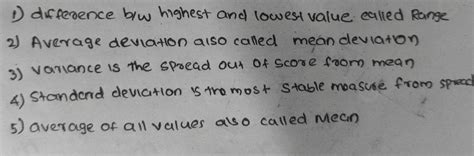 1) difference b/w highest and lowest value called Range
2) Average deviation also called mean deviation
3) Variance is the spread out of score from mean
4) Standerd deviation is the most stable measure from spread
5) average of all values also called Mean